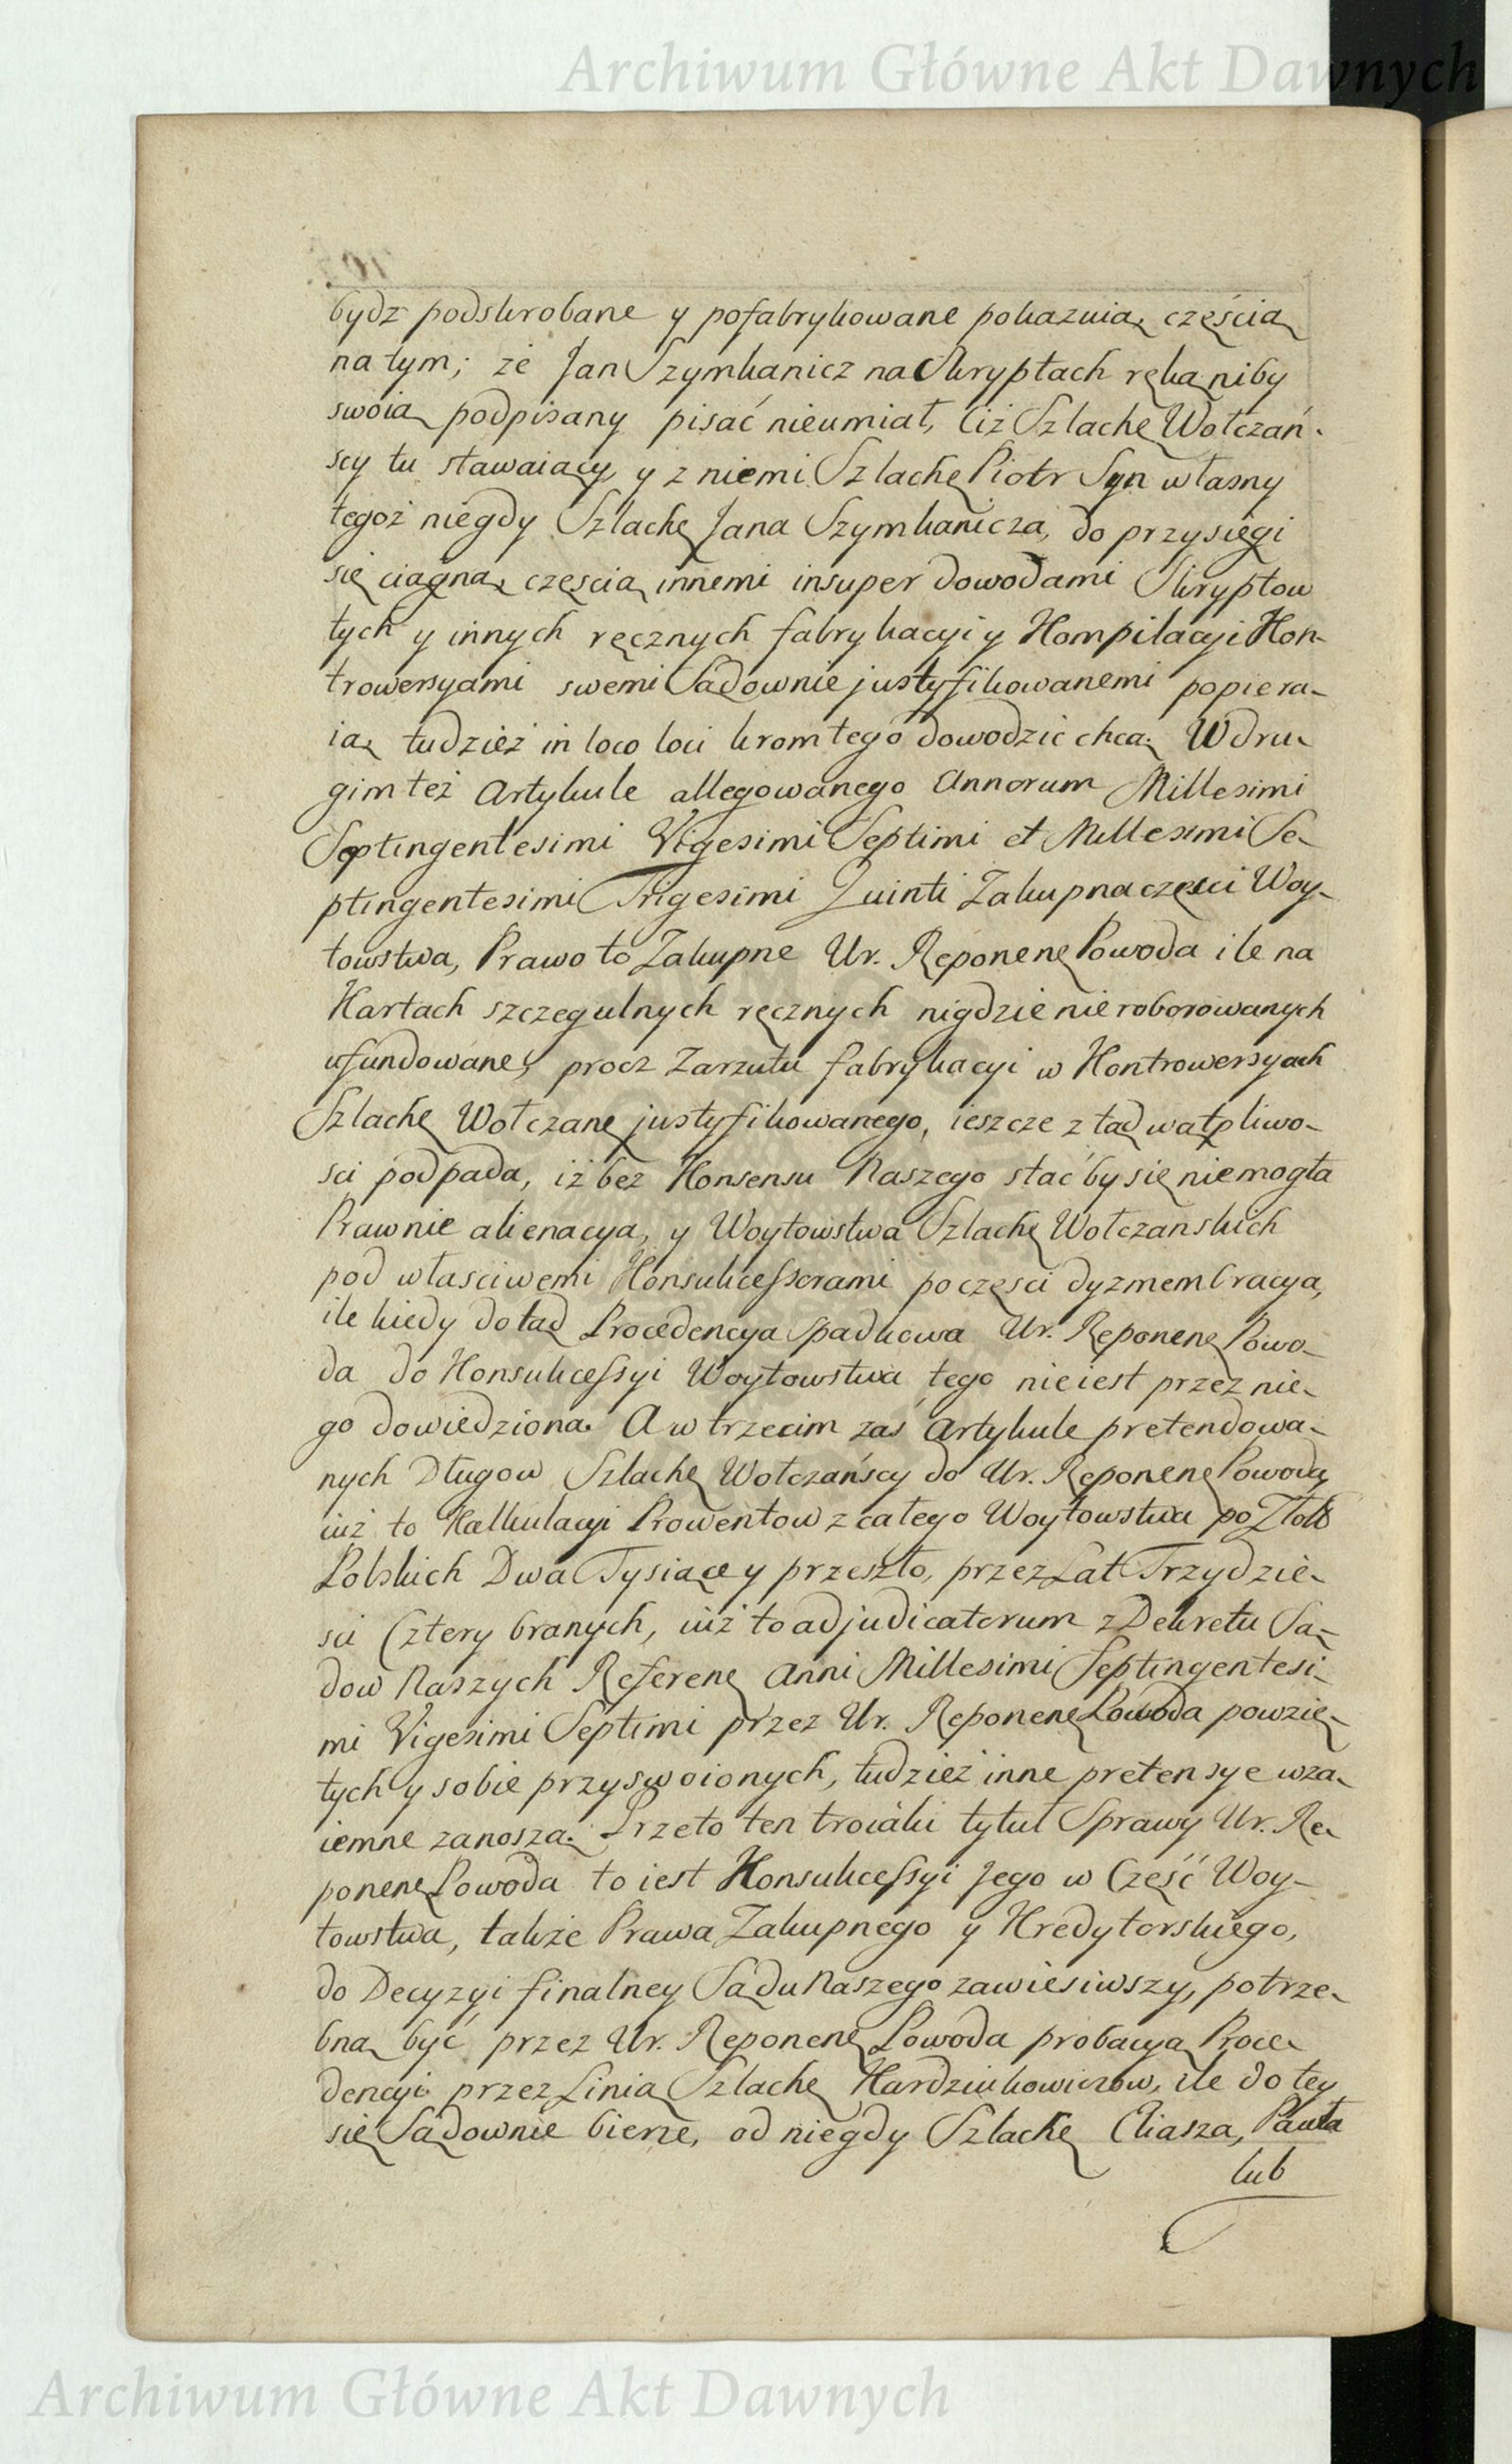 Archiwum Główne Akt Dawnych
bydz podskrobane y pofabrykowane pokazuią, częścią
na tym; że Jan Szymkanicz na Skryptach ręką niby
swoią podpisany pisać nieumiał, Ciż Szlache Wołczań-
scy tu stawaiący, y z niemi Szlache Piotr Syn własny
tegoż niegdy Szlache Jana Szymkanicza, do przysięgi
się ciągną, częscią innemi insuper dowodami Skryptow
tych y innych ręcznych fabrykacyi y Kompilacyi Kon-
trowersyami swemi Sądownie justyfikowanemi popiera-
ią, tudzież in loco loci krom tego dowodzić chcą. W dru-
gim też Artykule allegowanego Annorum Millesimi
Septingentesimi Vigesimi Septimi et Millesimi Se-
ptingentesimi Trigesimi Quinti Zakupna częsci Woy-
towstwa, Prawo to Zakupne Ur. Reponene Powoda ile na
Kartach szczegulnych ręcznych nigdzie nie roborowanych
ufundowane, procz Zarzutu fabrykacyi w Kontrowersyach
Szlache Wołczane justyfikowanego, ieszcze z tąd wątpliwo-
sci podpada, iż bez Konsensu Naszego stać by się niemogła
Prawnie alienacya, y Woytowstwa Szlache Wołczanskich
pod własciwemi Konsukcessorami po częsci dyzmembracya,
ile kiedy dotąd Procedencya Spadkowa Ur. Reponene Powo-
da do Konsukcessyi Woytowstwa tego nieiest przez nie-
go dowiedziona. A w trzecim zaś Artykule pretendowa-
nych Długow Szlache Wołczańscy do Ur. Reponene Powoda
iuż to Kalkulacyi Prowentow z całego Woytowstwa po Złoto
Polskich Dwa Tysiące y przeszło, przez Lat Trzydzie-
sci Cztery branych, iuż to adjudicatorum z Dekretu Są-
dow Naszych Referene Anni Millesimi Septingentesi-
mi Vigesimi Septimi przez Ur. Reponene Powoda powzię-
tych y sobie przyswoionych, tudzież inne pretensye wza-
iemne zanoszą. Przeto ten troiaki tytuł Sprawy Ur. Re-
ponene Powoda to iest Konsukcessyi Jego w Część Woy-
towstwa, także Prawa Zakupnego y Kredytorskiego,
do Decyzyi finalney Sądu Naszego zawiesiwszy, potrze-
bną być przez Ur. Reponene Powoda probacyą Proce-
dencyi przez Linią Szlache Hardziukowiczow, ile do tey
się Sądownie bierze, od niegdy Szlache Eliasza, Pawła
lub
Archiwum Główne Akt Dawnych